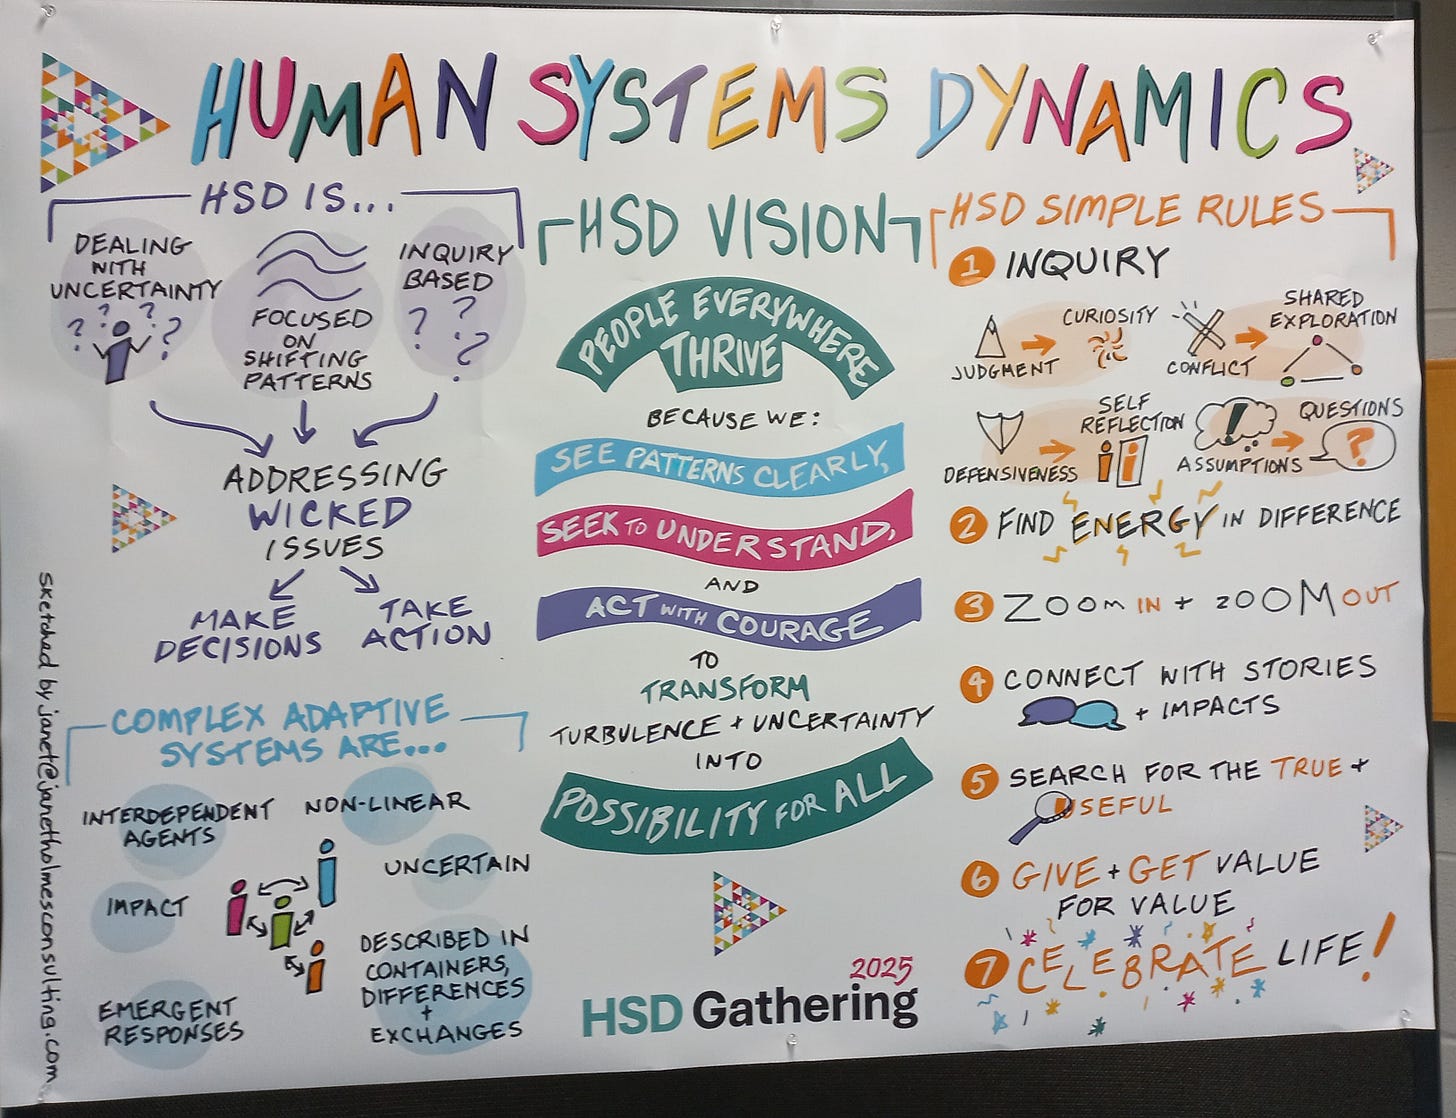 HUMAN SYSTEMS DYNAMICS
HSD IS...
DEALING
WITH
UNCERTAINTY
? ? ? ?
FOCUSED
ON
SHIFTING
PATTERNS
INQUIRY
BASED
? ? ? ?
ADDRESSING
WICKED
ISSUES
MAKE
DECISIONS
TAKE
ACTION
COMPLEX ADAPTIVE
SYSTEMS ARE...
INTERDEPENDENT
AGENTS
NON-LINEAR
UNCERTAIN
IMPACT
DESCRIBED IN
CONTAINERS,
DIFFERENCES
+
EXCHANGES
EMERGENT
RESPONSES
sketched by janet@janetholmesconsulting.com
HSD VISION
PEOPLE EVERYWHERE
THRIVE
BECAUSE WE:
SEE PATTERNS CLEARLY,
SEEK TO UNDERSTAND,
AND
ACT WITH COURAGE
TO
TRANSFORM
TURBULENCE + UNCERTAINTY
INTO
POSSIBILITY FOR ALL
2025
HSD Gathering
HSD SIMPLE RULES
1 INQUIRY
JUDGMENT
CURIOSITY
CONFLICT
SHARED
EXPLORATION
DEFENSIVENESS
SELF
REFLECTION
!
ASSUMPTIONS
QUESTIONS
?
2 FIND ENERGY IN DIFFERENCE
3 ZOOM IN + ZOOM OUT
4 CONNECT WITH STORIES
+ IMPACTS
5 SEARCH FOR THE TRUE +
USEFUL
6 GIVE + GET VALUE
FOR VALUE
7 CELEBRATE LIFE!